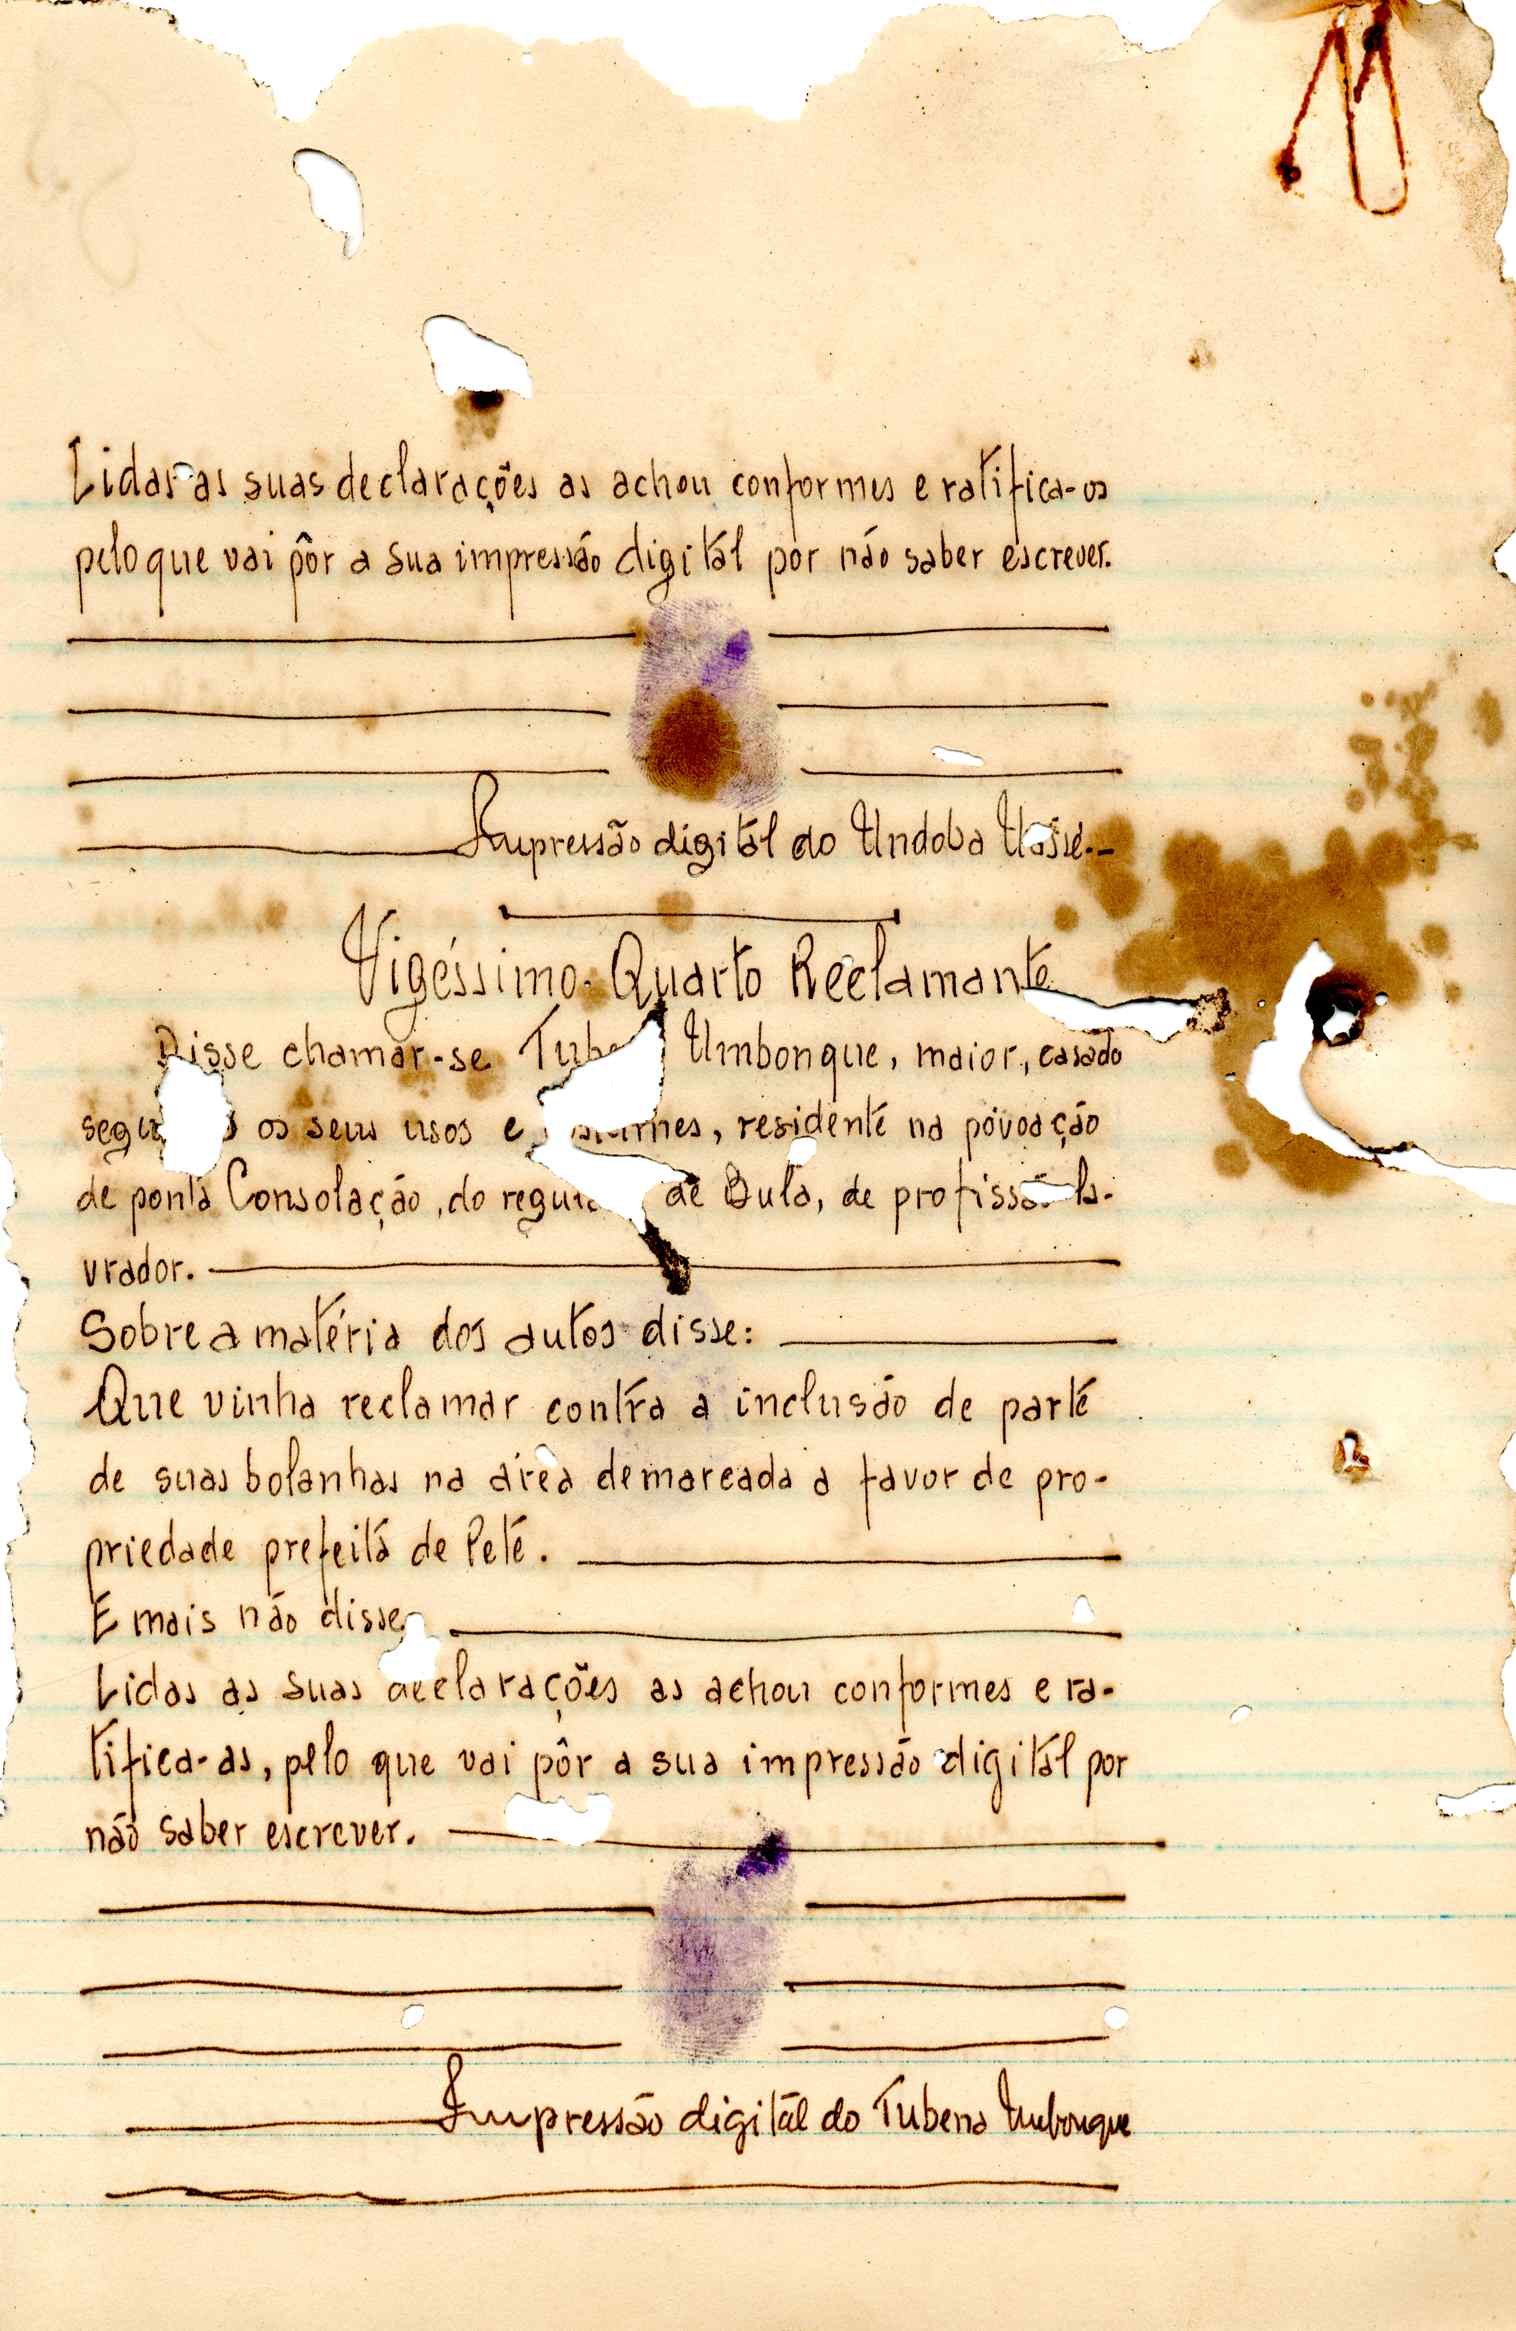 Lidas as suas declarações as achou conformes e ratifica-os
pelo que vai pôr a sua impressão digitál por não saber escrever.
Impressão digitál do Undoba Uasse.-
Vigéssimo. Quarto Reclamante
Disse chamar-se Umbonque, maior, casado
os seus usos e residente na povoação
de ponta Consolação, do de Bula, de profissão la-
vrador.
Sobre a matéria dos autos disse:
Que vinha reclamar contra a inclusão de parte
de suas bolanhas na área demarcada a favor de pro-
priedade prefeita de Peté.
E mais não disse
Lidas as suas declarações as achou conformes e ra-
tifica-as, pelo que vai pôr a sua impressão digitál por
não saber escrever.
Impressão digitál do Tubena Umbonque